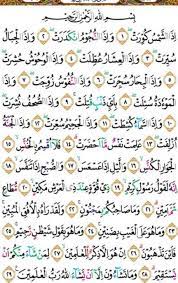 بِسْمِ ٱللَّهِ ٱلرَّحْمَٰنِ ٱلرَّحِيمِ
إِذَا ٱلشَّمْسُ كُوِّرَتْ ١ وَإِذَا ٱلنُّجُومُ ٱنكَدَرَتْ ٢ وَإِذَا ٱلْجِبَالُ
سُيِّرَتْ ٣ وَإِذَا ٱلْعِشَارُ عُطِّلَتْ ٤ وَإِذَا ٱلْوُحُوشُ حُشِرَتْ
٥ وَإِذَا ٱلْبِحَارُ سُجِّرَتْ ٦ وَإِذَا ٱلنُّفُوسُ زُوِّجَتْ ٧ وَإِذَا
ٱلْمَوْءُۥدَةُ سُئِلَتْ ٨ بِأَىِّ ذَنۢبٍ قُتِلَتْ ٩ وَإِذَا ٱلصُّحُفُ نُشِرَتْ
١٠ وَإِذَا ٱلسَّمَآءُ كُشِطَتْ ١١ وَإِذَا ٱلْجَحِيمُ سُعِّرَتْ ١٢ وَإِذَا ٱلْجَنَّةُ
أُزْلِفَتْ ١٣ عَلِمَتْ نَفْسٌ مَّآ أَحْضَرَتْ ١٤ فَلَآ أُقْسِمُ بِٱلْخُنَّسِ ١٥
ٱلْجَوَارِ ٱلْكُنَّسِ ١٦ وَٱلَّيْلِ إِذَا عَسْعَسَ ١٧ وَٱلصُّبْحِ إِذَا تَنَفَّسَ ١٨
إِنَّهُۥ لَقَوْلُ رَسُولٍ كَرِيمٍ ١٩ ذِى قُوَّةٍ عِندَ ذِى ٱلْعَرْشِ مَكِينٍ ٢٠ مُّطَاعٍ
ثَمَّ أَمِينٍ ٢١ وَمَا صَاحِبُكُم بِمَجْنُونٍ ٢٢ وَلَقَدْ رَءَاهُ بِٱلْأُفُقِ ٱلْمُبِينِ
٢٣ وَمَا هُوَ عَلَى ٱلْغَيْبِ بِضَنِينٍ ٢٤ وَمَا هُوَ بِقَوْلِ شَيْطَٰنٍ رَّجِيمٍ ٢٥
فَأَيْنَ تَذْهَبُونَ ٢٦ إِنْ هُوَ إِلَّا ذِكْرٌ لِّلْعَٰلَمِينَ ٢٧ لِمَن شَآءَ مِنكُمْ أَن
يَسْتَقِيمَ ٢٨ وَمَا تَشَآءُونَ إِلَّآ أَن يَشَآءَ ٱللَّهُ رَبُّ ٱلْعَٰلَمِينَ ٢٩